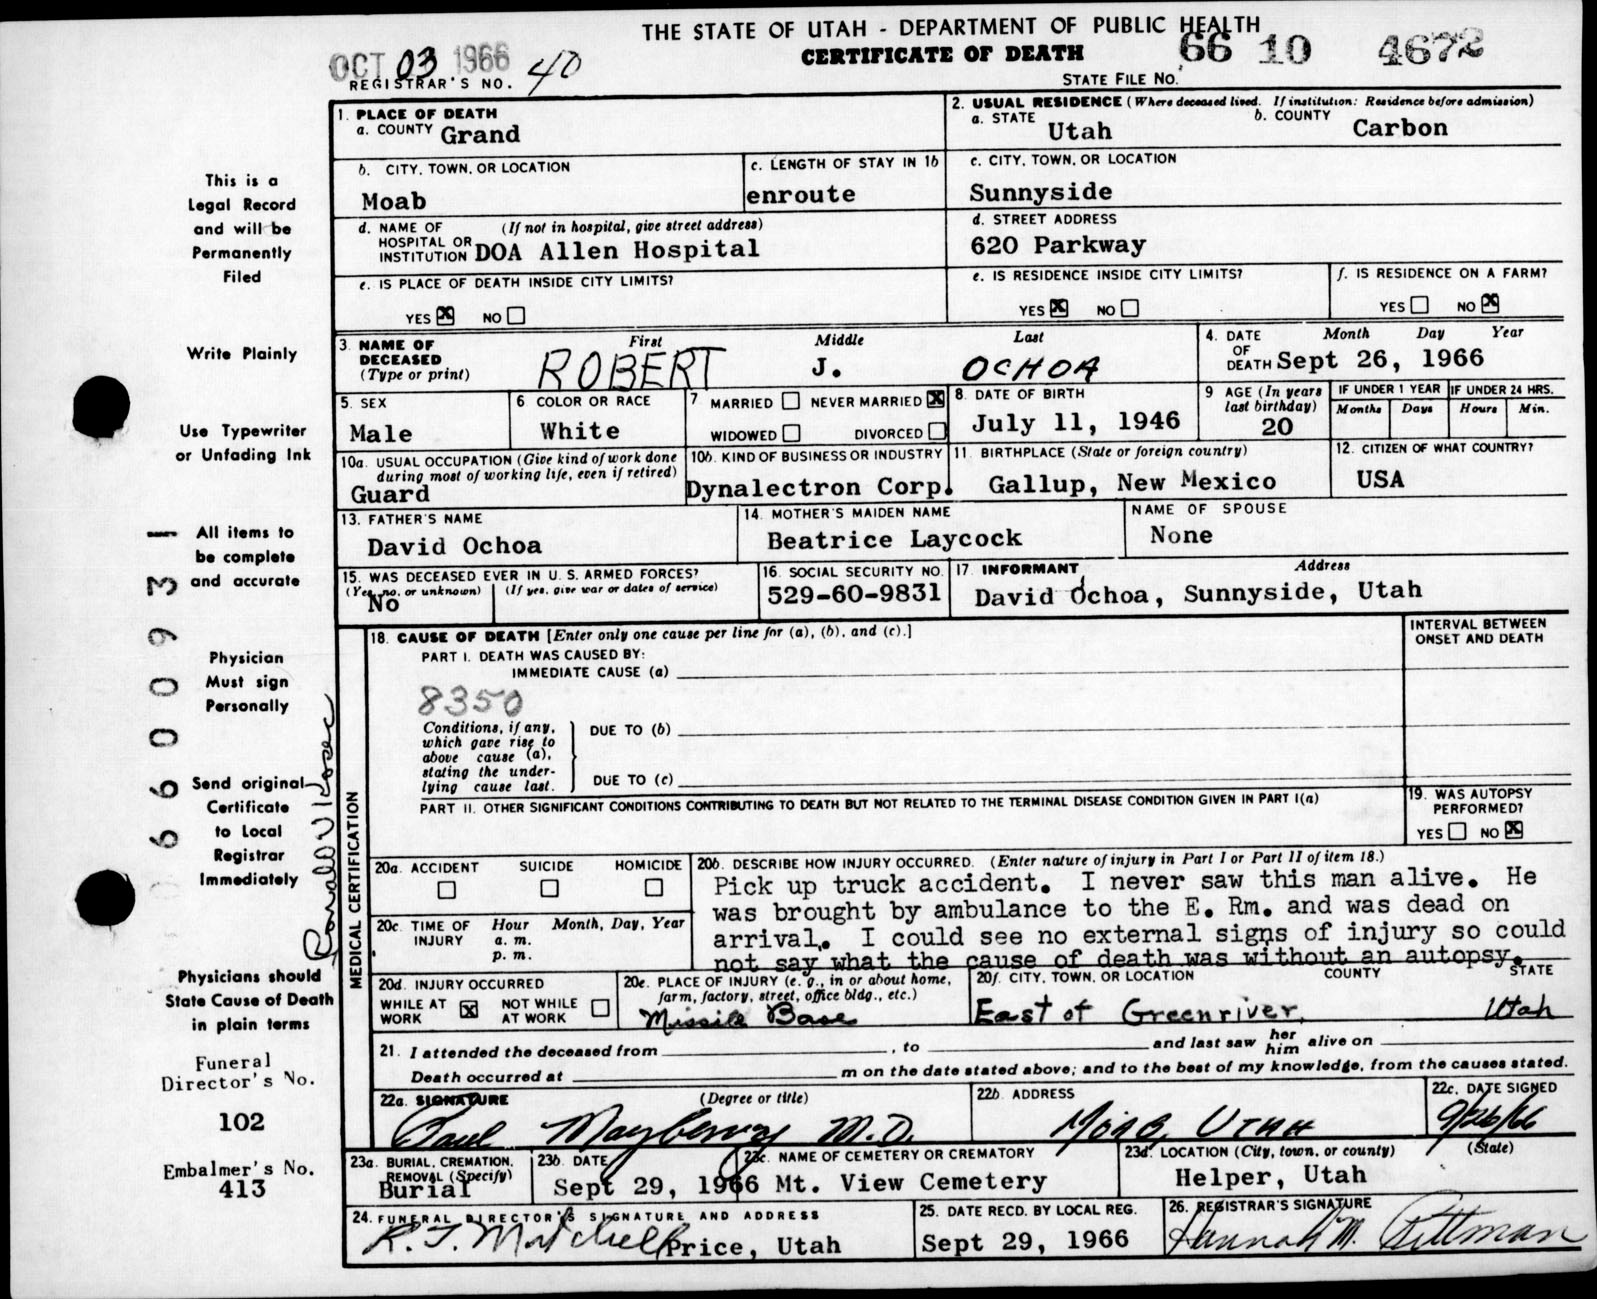 THE STATE OF UTAH - DEPARTMENT OF PUBLIC HEALTH
CERTIFICATE OF DEATH
OCT 03 1966
REGISTRAR'S NO. 40
STATE FILE NO. 66 10 4672
1. PLACE OF DEATH
a. COUNTY Grand
2. USUAL RESIDENCE (Where deceased lived. If institution: Residence before admission)
a. STATE Utah
b. COUNTY Carbon
b. CITY, TOWN, OR LOCATION
Moab
c. LENGTH OF STAY IN 1b
enroute
c. CITY, TOWN, OR LOCATION
Sunnyside
d. NAME OF HOSPITAL OR INSTITUTION (If not in hospital, give street address)
DOA Allen Hospital
d. STREET ADDRESS
620 Parkway
e. IS PLACE OF DEATH INSIDE CITY LIMITS?
YES X NO
e. IS RESIDENCE INSIDE CITY LIMITS?
YES X NO
f. IS RESIDENCE ON A FARM?
YES NO X
3. NAME OF DECEASED (Type or print)
First Middle Last
ROBERT J. OCHOA
4. DATE OF DEATH Month Day Year
Sept 26, 1966
5. SEX
Male
6 COLOR OR RACE
White
7 MARRIED NEVER MARRIED X
WIDOWED DIVORCED
8. DATE OF BIRTH
July 11, 1946
9 AGE (In years last birthday)
20
IF UNDER 1 YEAR IF UNDER 24 HRS.
Months Days Hours Min.
10a. USUAL OCCUPATION (Give kind of work done during most of working life, even if retired)
Guard
10b. KIND OF BUSINESS OR INDUSTRY
Dynalectron Corp.
11. BIRTHPLACE (State or foreign country)
Gallup, New Mexico
12. CITIZEN OF WHAT COUNTRY?
USA
13. FATHER'S NAME
David Ochoa
14. MOTHER'S MAIDEN NAME
Beatrice Laycock
NAME OF SPOUSE
None
15. WAS DECEASED EVER IN U. S. ARMED FORCES?
(Yes, no. or unknown) (If yes, give war or dates of service)
No
16. SOCIAL SECURITY NO.
529-60-9831
17. INFORMANT Address
David Ochoa, Sunnyside, Utah
MEDICAL CERTIFICATION
18. CAUSE OF DEATH [Enter only one cause per line for (a), (b), and (c).]
INTERVAL BETWEEN ONSET AND DEATH
PART I. DEATH WAS CAUSED BY:
IMMEDIATE CAUSE (a)
8350
Conditions, if any, which gave rise to above cause (a), stating the underlying cause last.
DUE TO (b)
DUE TO (c)
PART II. OTHER SIGNIFICANT CONDITIONS CONTRIBUTING TO DEATH BUT NOT RELATED TO THE TERMINAL DISEASE CONDITION GIVEN IN PART I(a)
19. WAS AUTOPSY PERFORMED?
YES NO X
20a. ACCIDENT SUICIDE HOMICIDE
20b. DESCRIBE HOW INJURY OCCURRED. (Enter nature of injury in Part I or Part II of item 18.)
Pick up truck accident. I never saw this man alive. He
was brought by ambulance to the E. Rm. and was dead on
arrival. I could see no external signs of injury so could
not say what the cause of death was without an autopsy.
20c. TIME OF INJURY Hour Month, Day, Year
a. m.
p. m.
20d. INJURY OCCURRED
WHILE AT WORK X NOT WHILE AT WORK
20e. PLACE OF INJURY (e. g., in or about home, farm, factory, street, office bldg., etc.)
Missile Base
20f. CITY, TOWN, OR LOCATION COUNTY STATE
East of Greenriver, Utah
21. I attended the deceased from , to and last saw her him alive on
Death occurred at m on the date stated above; and to the best of my knowledge, from the causes stated.
22a. SIGNATURE (Degree or title)
Paul Mayberry M.D.
22b. ADDRESS
Moab, Utah
22c. DATE SIGNED
9/26/66
23a. BURIAL, CREMATION, REMOVAL (Specify)
Burial
23b. DATE
Sept 29, 1966
23c. NAME OF CEMETERY OR CREMATORY
Mt. View Cemetery
23d. LOCATION (City, town, or county) (State)
Helper, Utah
24. FUNERAL DIRECTOR'S SIGNATURE AND ADDRESS
R. J. Mitchell Price, Utah
25. DATE RECD. BY LOCAL REG.
Sept 29, 1966
26. REGISTRAR'S SIGNATURE
Hannah M. Pittman
This is a
Legal Record
and will be
Permanently
Filed
Write Plainly
Use Typewriter
or Unfading Ink
All items to
be complete
and accurate
Physician
Must sign
Personally
Send original
Certificate
to Local
Registrar
Immediately
Physicians should
State Cause of Death
in plain terms
Funeral
Director's No.
102
Embalmer's No.
413
660093